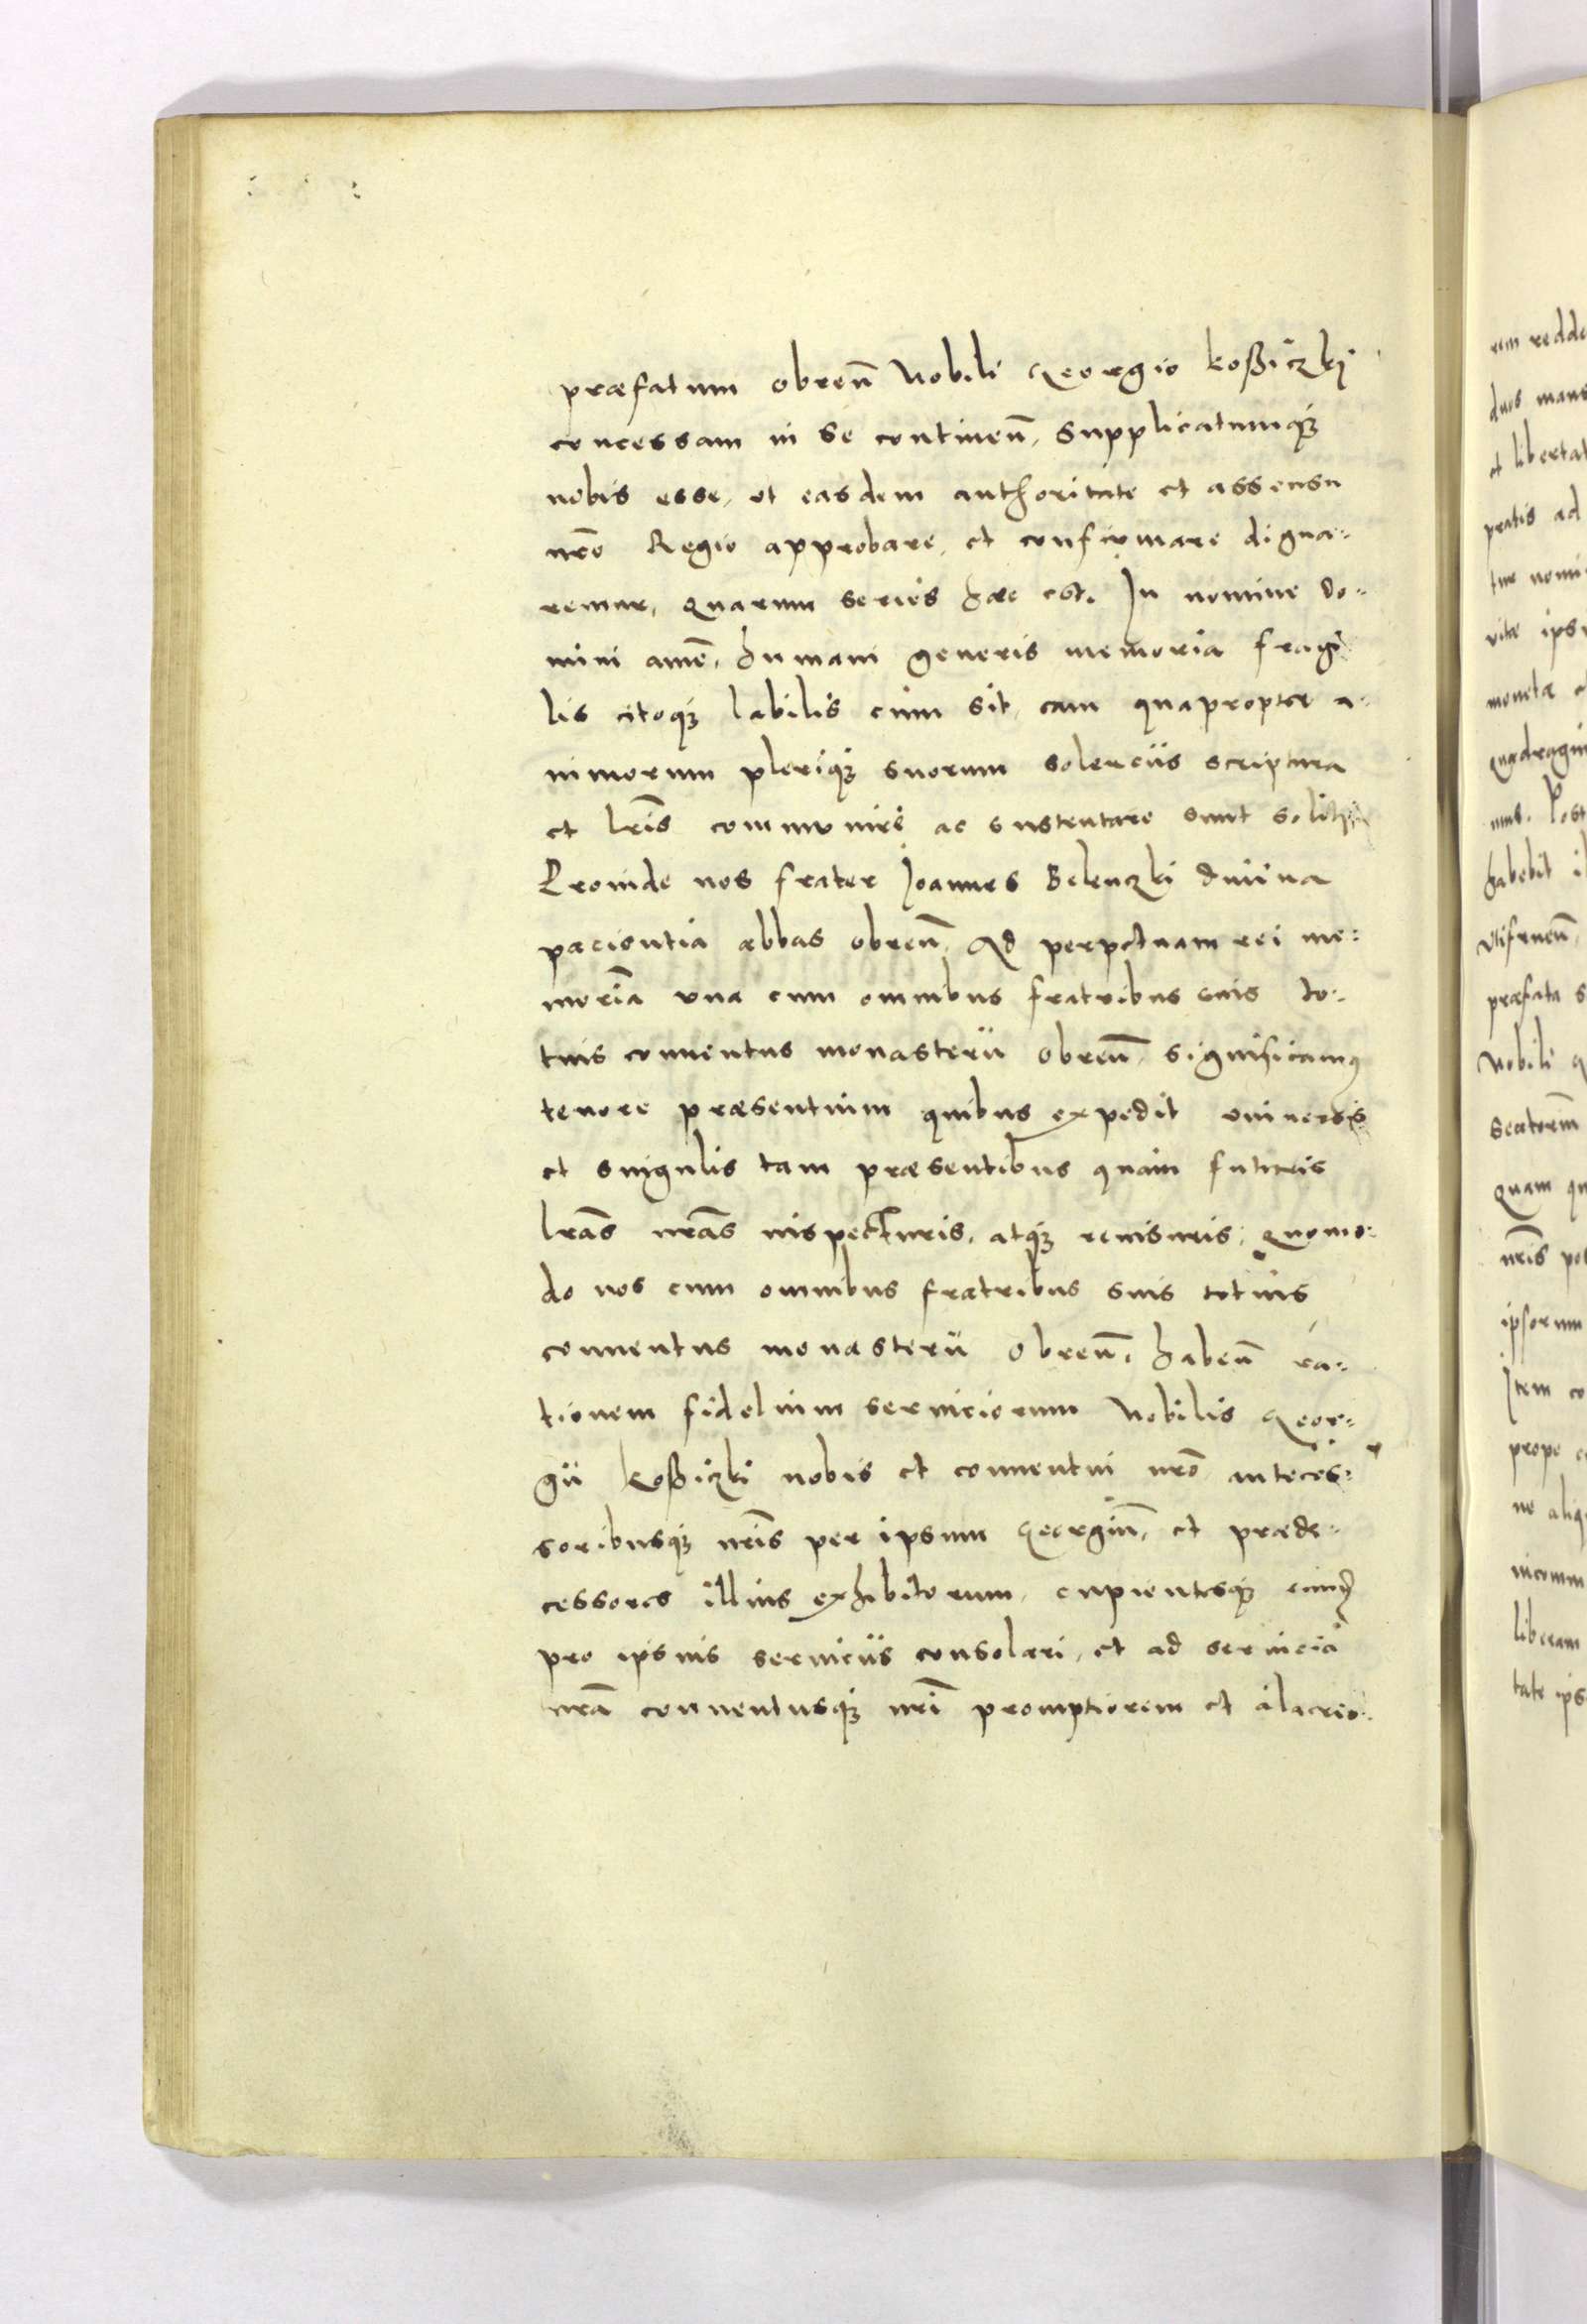 præfatum obreñ Nobili Georgio koßiczki
concessam in se contineñ, supplicatumq₃
nobis esse, ut easdem authoritate et assensu
nr̃o Regio approbare, et confirmare digna-
remur, quarum series hæc est. In nomine do-
mini amẽ, humani generis memoria fragi
lis citoq₃ labilis cum sit, eam quapropter a-
nimorum pleriq₃ suorum solerciis scriptura
et lr̃is communire ac sustentare sunt soliti
Proinde nos frater Joannes Belenczki divina
pacientia abbas obreñ, Ad perpetuam rei me-
moriã una cum omnibus fratribus suis to-
tius conuentus monasterii obreñ, significamus
tenore præsentium quibus expedit uniuersis
et singulis tam præsentibus quam futuris
lr̃as nr̃as inspecturis, atq₃ reuisuris, quomo-
do nos cum omnibus fratribus suis totius
conuentus monasterii obreñ, habeñ ra-
tionem fidelium seruiciorum Nobilis Geor-
gii koßiczki nobis et conuentui nr̃o anteces-
soribusq₃ nr̃is per ipsum Georgiũ, et præde-
cessores illius exhibitorum, cupientesq₃ eund
pro ipsius seruiciis consolari, et ad seruicia
nr̃a conuentusq₃ nr̃i promptiorem et alacrio-
rem redde
duos mans
et libertat
pratis ad
tur nomi
vitæ ips
monetæ
quadragin
mus. Post
habebit il
utifrueñ,
præfata s
Nobili G
quam qu
nr̃is pos
ipsorum
Item co
prope
ne aliq
liberam
tate ips